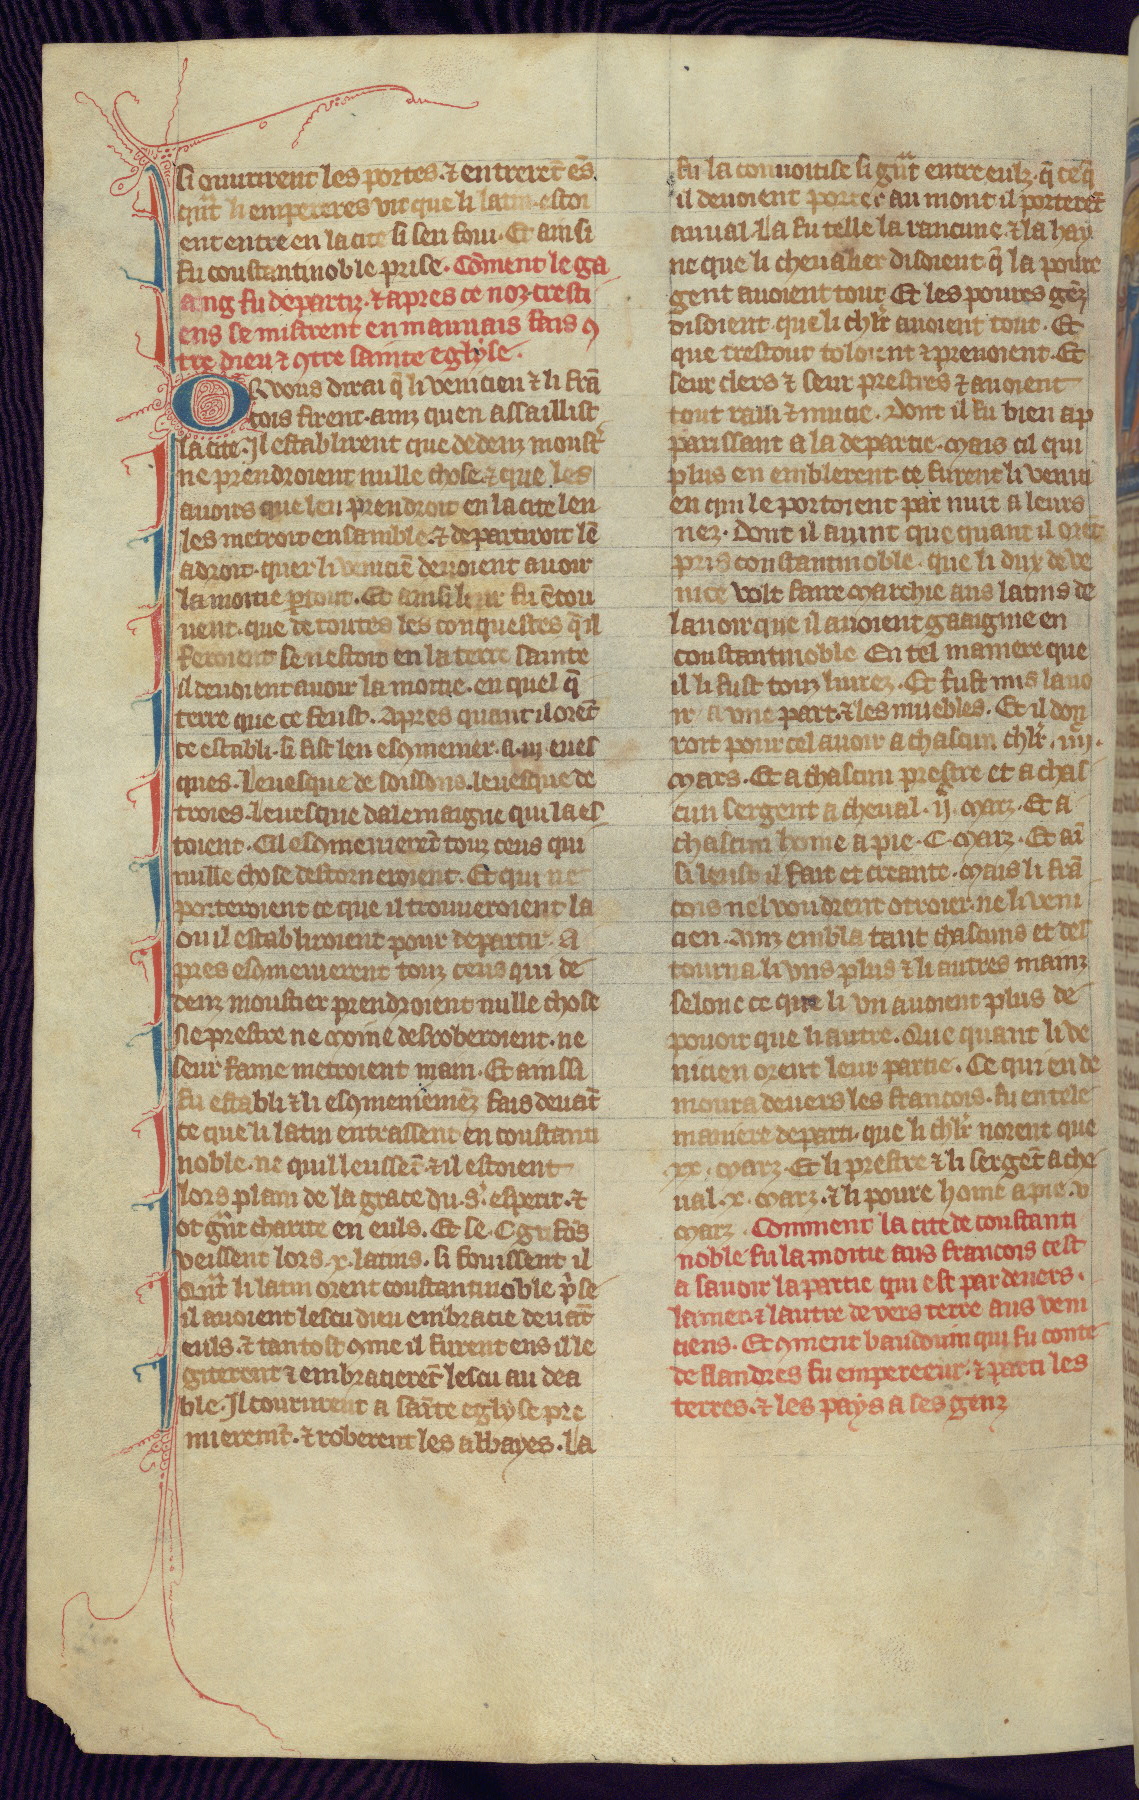 si ouurirent les portes. ⁊ entrerẽt ẽs
qñt li empereres vit que li latin estoi
ent entre en la cite si sen foui. Et ainsi
fu coustantinoble prise. Cõment le ga
aing fu departiz. ⁊ apres ce noz cresti
ens se mistrent en mauuais fais ꝯ
tre dieu ⁊ ꝯtre sainte eglyse.
Or vous dirai q̃ li venicien ⁊ li frã
cois firent. ainz quen assaillist
la cite. Il establirent que dedenz moustͬ
ne prendroient nulle chose. ⁊ que les
auoirs que len prendroit en la cite len
les metroit ensamble. ⁊ departiroit lẽ
a droit. quer li veniciẽ deuoient auoir
la moitie partout. Et ainsi leur fu ẽcou
uent. que de toutes les conquestes q̃ il
feroient se nestoit en la terre sainte
il deuoient auoir la moitie. en quel q̃
terre que ce feust. Apres quant il orẽt
ce establi. si fist len esqmenier. a .iij. eues
ques. Leuesque de soissons. leuesque de
troies. leuesque dalemaigne qui la es
toient. Cil esqmenierẽt touz ceus qui
nulle chose destorneroient. Et qui ne
porteroient ce que il trouueroient la
ou il establiroient pour departir. A
pres esqmenierent touz ceus qui de
denz moustier prendroient nulle chose
Ne prestre ne moine desroberoient. ne
seur fame metroient main. Et ainssi
fu establi ⁊ li esqmeniemẽz fais deuãt
ce que li latin entrassent en coustanti
noble. ne quil leussẽt. ⁊ il estoient
lors plain de la grace du .s. esperit. ⁊
ot gñt charite en euls. Et se .C. grifõs
veissent lors .x. latins. si fouissent il
Qñt li latin orent coustantinoble p̃se
il auoient lescu dieu embracie deuãt
euls. ⁊ tantost ꝯme il furent ens il le
giterent ⁊ embracierẽt lescu au dea
ble. Il coururent a saĩte eglyse pre
mieremẽt. ⁊ roberent les abbayes. La
fu la couuoitise si gñt entre eulz. q̃ ce q̃
il deuoient porter au mont il porterẽt
auual. La fu telle la rancune. ⁊ la hay
ne que li cheualier disoient q̃ la poure
gent auoient tout. Et les poures gẽz
disoient. que li chlr auoient tout. Et
que trestout toloient ⁊ prenoient. Et
seur clers ⁊ seur prestres ⁊ auoient
tout raui ⁊ mucie. Dont il fu bien ap
parissant a la departie. Mais cil qui
plus en emblerent. ce furent li venici
en qui le portoient par nuit a leurs
nez. Dont il auint que quant il orẽt
pris constantinoble. que li dux de ve
nice volt faire marchie aus latins de
lauoir que il auoient gaaignie en
coustantinoble. En tel maniere que
il li fust touz liurez. Et fust mis lauo
ir a vne part. ⁊ les muebles. Et il don
roit pour cel auoir a chascun chlr .iiij.
Mars. Et a chascun prestre et a chas
cun sergent a cheual .ij. Marz. Et a
chascun home a pie .C. Marz. Et aĩ
si leust il fait et creante. Mais li frã
cois nel voudrent otroier. ne li veni
cien. Ainz embla tant chascuns et des
tourna li vns plus ⁊ li autres mainz
selonc ce que li vn auoient plus de
pouoir que li autre. Que quant li ve
nicien orent leur partie. Ce qui en de
moura deuers les francois. fu en tele
maniere departi. que li chlr norent que
.xx. Marz. Et li prestre ⁊ li sergẽt a che
ual .x. Marz. ⁊ li poure home a pie .v.
Marz. Comment la cite de coustanti
noble fu la moitie aus francois cest
a sauoir la partie qui est par deuers.
la mer. ⁊ lautre de vers terre aus veni
ciens. Et ꝯment baudouin qui fu conte
de flandres fu empereeur. ⁊ parti les
terres. ⁊ les pays a ses genz